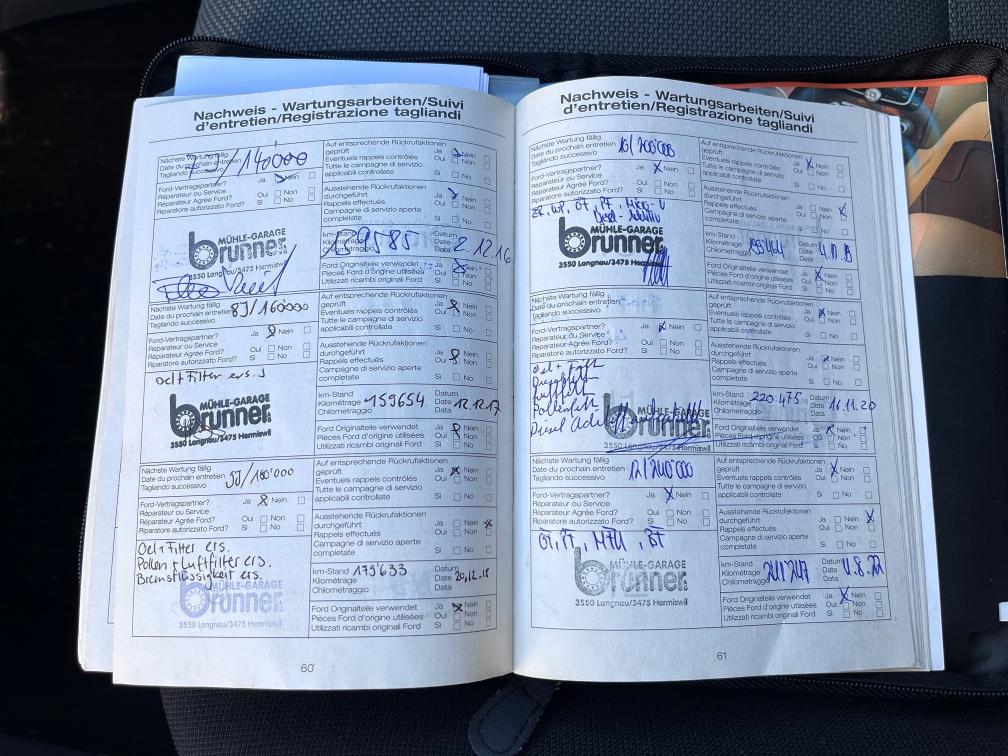 Nachweis - Wartungsarbeiten/Suivi
d'entretien/Registrazione tagliandi
Nächste Wartung fällig
Date du prochain entretien
Tagliando successivo
/140'000
Ford-Vertragspartner? Ja Nein
Réparateur ou Service
Réparateur Agrée Ford? Oui Non
Riparatore autorizzato Ford? Si No
MÜHLE-GARAGE
brunner
3550 Langnau/3475 Hermiswil
Auf entsprechende Rückrufaktionen
geprüft Ja Nein
Eventuels rappels contrôlés Oui Non
Tutte le campagne di servizio
applicabili controllate Si No
Ausstehende Rückrufaktionen
durchgeführt Ja Nein
Rappels effectués Oui Non
Campagne di servizio aperte
completate Si No
km-Stand
Kilométrage
Chilometraggio
139585
Datum
Date
Data
2.12.16
Ford Originalteile verwendet Ja Nein
Pièces Ford d'origine utilisées Oui Non
Utilizzati ricambi originali Ford Si No
Nächste Wartung fällig
Date du prochain entretien
Tagliando successivo
8J/160'000
Ford-Vertragspartner? Ja Nein
Réparateur ou Service
Réparateur Agrée Ford? Oui Non
Riparatore autorizzato Ford? Si No
Oel+Filter ers.
MÜHLE-GARAGE
brunner
3550 Langnau/3475 Hermiswil
Auf entsprechende Rückrufaktionen
geprüft Ja Nein
Eventuels rappels contrôlés Oui Non
Tutte le campagne di servizio
applicabili controllate Si No
Ausstehende Rückrufaktionen
durchgeführt Ja Nein
Rappels effectués Oui Non
Campagne di servizio aperte
completate Si No
km-Stand
Kilométrage
Chilometraggio
159654
Datum
Date
Data
12.12.17
Ford Originalteile verwendet Ja Nein
Pièces Ford d'origine utilisées Oui Non
Utilizzati ricambi originali Ford Si No
Nächste Wartung fällig
Date du prochain entretien
Tagliando successivo
9J/180'000
Ford-Vertragspartner? Ja Nein
Réparateur ou Service
Réparateur Agrée Ford? Oui Non
Riparatore autorizzato Ford? Si No
Oel+Filter ers.
Pollen + Luftfilter ers.
Bremsflüssigkeit ers.
MÜHLE-GARAGE
brunner
3550 Langnau/3475 Hermiswil
Auf entsprechende Rückrufaktionen
geprüft Ja Nein
Eventuels rappels contrôlés Oui Non
Tutte le campagne di servizio
applicabili controllate Si No
Ausstehende Rückrufaktionen
durchgeführt Ja Nein
Rappels effectués Oui Non
Campagne di servizio aperte
completate Si No
km-Stand
Kilométrage
Chilometraggio
179'633
Datum
Date
Data
20.12.18
Ford Originalteile verwendet Ja Nein
Pièces Ford d'origine utilisées Oui Non
Utilizzati ricambi originali Ford Si No
60
Nachweis - Wartungsarbeiten/Suivi
d'entretien/Registrazione tagliandi
Nächste Wartung fällig
Date du prochain entretien
Tagliando successivo
10/200'000
Ford-Vertragspartner? Ja Nein
Réparateur ou Service
Réparateur Agrée Ford? Oui Non
Riparatore autorizzato Ford? Si No
MÜHLE-GARAGE
brunner
3550 Langnau/3475 Hermiswil
Auf entsprechende Rückrufaktionen
geprüft Ja Nein
Eventuels rappels contrôlés Oui Non
Tutte le campagne di servizio
applicabili controllate Si No
Ausstehende Rückrufaktionen
durchgeführt Ja Nein
Rappels effectués Oui Non
Campagne di servizio aperte
completate Si No
km-Stand
Kilométrage
Chilometraggio
Datum
Date
Data
Ford Originalteile verwendet Ja Nein
Pièces Ford d'origine utilisées Oui Non
Utilizzati ricambi originali Ford Si No
Nächste Wartung fällig
Date du prochain entretien
Tagliando successivo
Ford-Vertragspartner? Ja Nein
Réparateur ou Service
Réparateur Agrée Ford? Oui Non
Riparatore autorizzato Ford? Si No
Oel + Filt
Luftfilt
Pollenfilt
Diesel Aditiv
MÜHLE-GARAGE
brunner
3550 Langnau/3475 Hermiswil
Auf entsprechende Rückrufaktionen
geprüft Ja Nein
Eventuels rappels contrôlés Oui Non
Tutte le campagne di servizio
applicabili controllate Si No
Ausstehende Rückrufaktionen
durchgeführt Ja Nein
Rappels effectués Oui Non
Campagne di servizio aperte
completate Si No
km-Stand
Kilométrage
Chilometraggio
220 475
Datum
Date
Data
16.11.20
Ford Originalteile verwendet Ja Nein
Pièces Ford d'origine utilisées Oui Non
Utilizzati ricambi originali Ford Si No
Nächste Wartung fällig
Date du prochain entretien
Tagliando successivo
12/240'000
Ford-Vertragspartner? Ja Nein
Réparateur ou Service
Réparateur Agrée Ford? Oui Non
Riparatore autorizzato Ford? Si No
MÜHLE-GARAGE
brunner
3550 Langnau/3475 Hermiswil
Auf entsprechende Rückrufaktionen
geprüft Ja Nein
Eventuels rappels contrôlés Oui Non
Tutte le campagne di servizio
applicabili controllate Si No
Ausstehende Rückrufaktionen
durchgeführt Ja Nein
Rappels effectués Oui Non
Campagne di servizio aperte
completate Si No
km-Stand
Kilométrage
Chilometraggio
Datum
Date
Data
Ford Originalteile verwendet Ja Nein
Pièces Ford d'origine utilisées Oui Non
Utilizzati ricambi originali Ford Si No
61